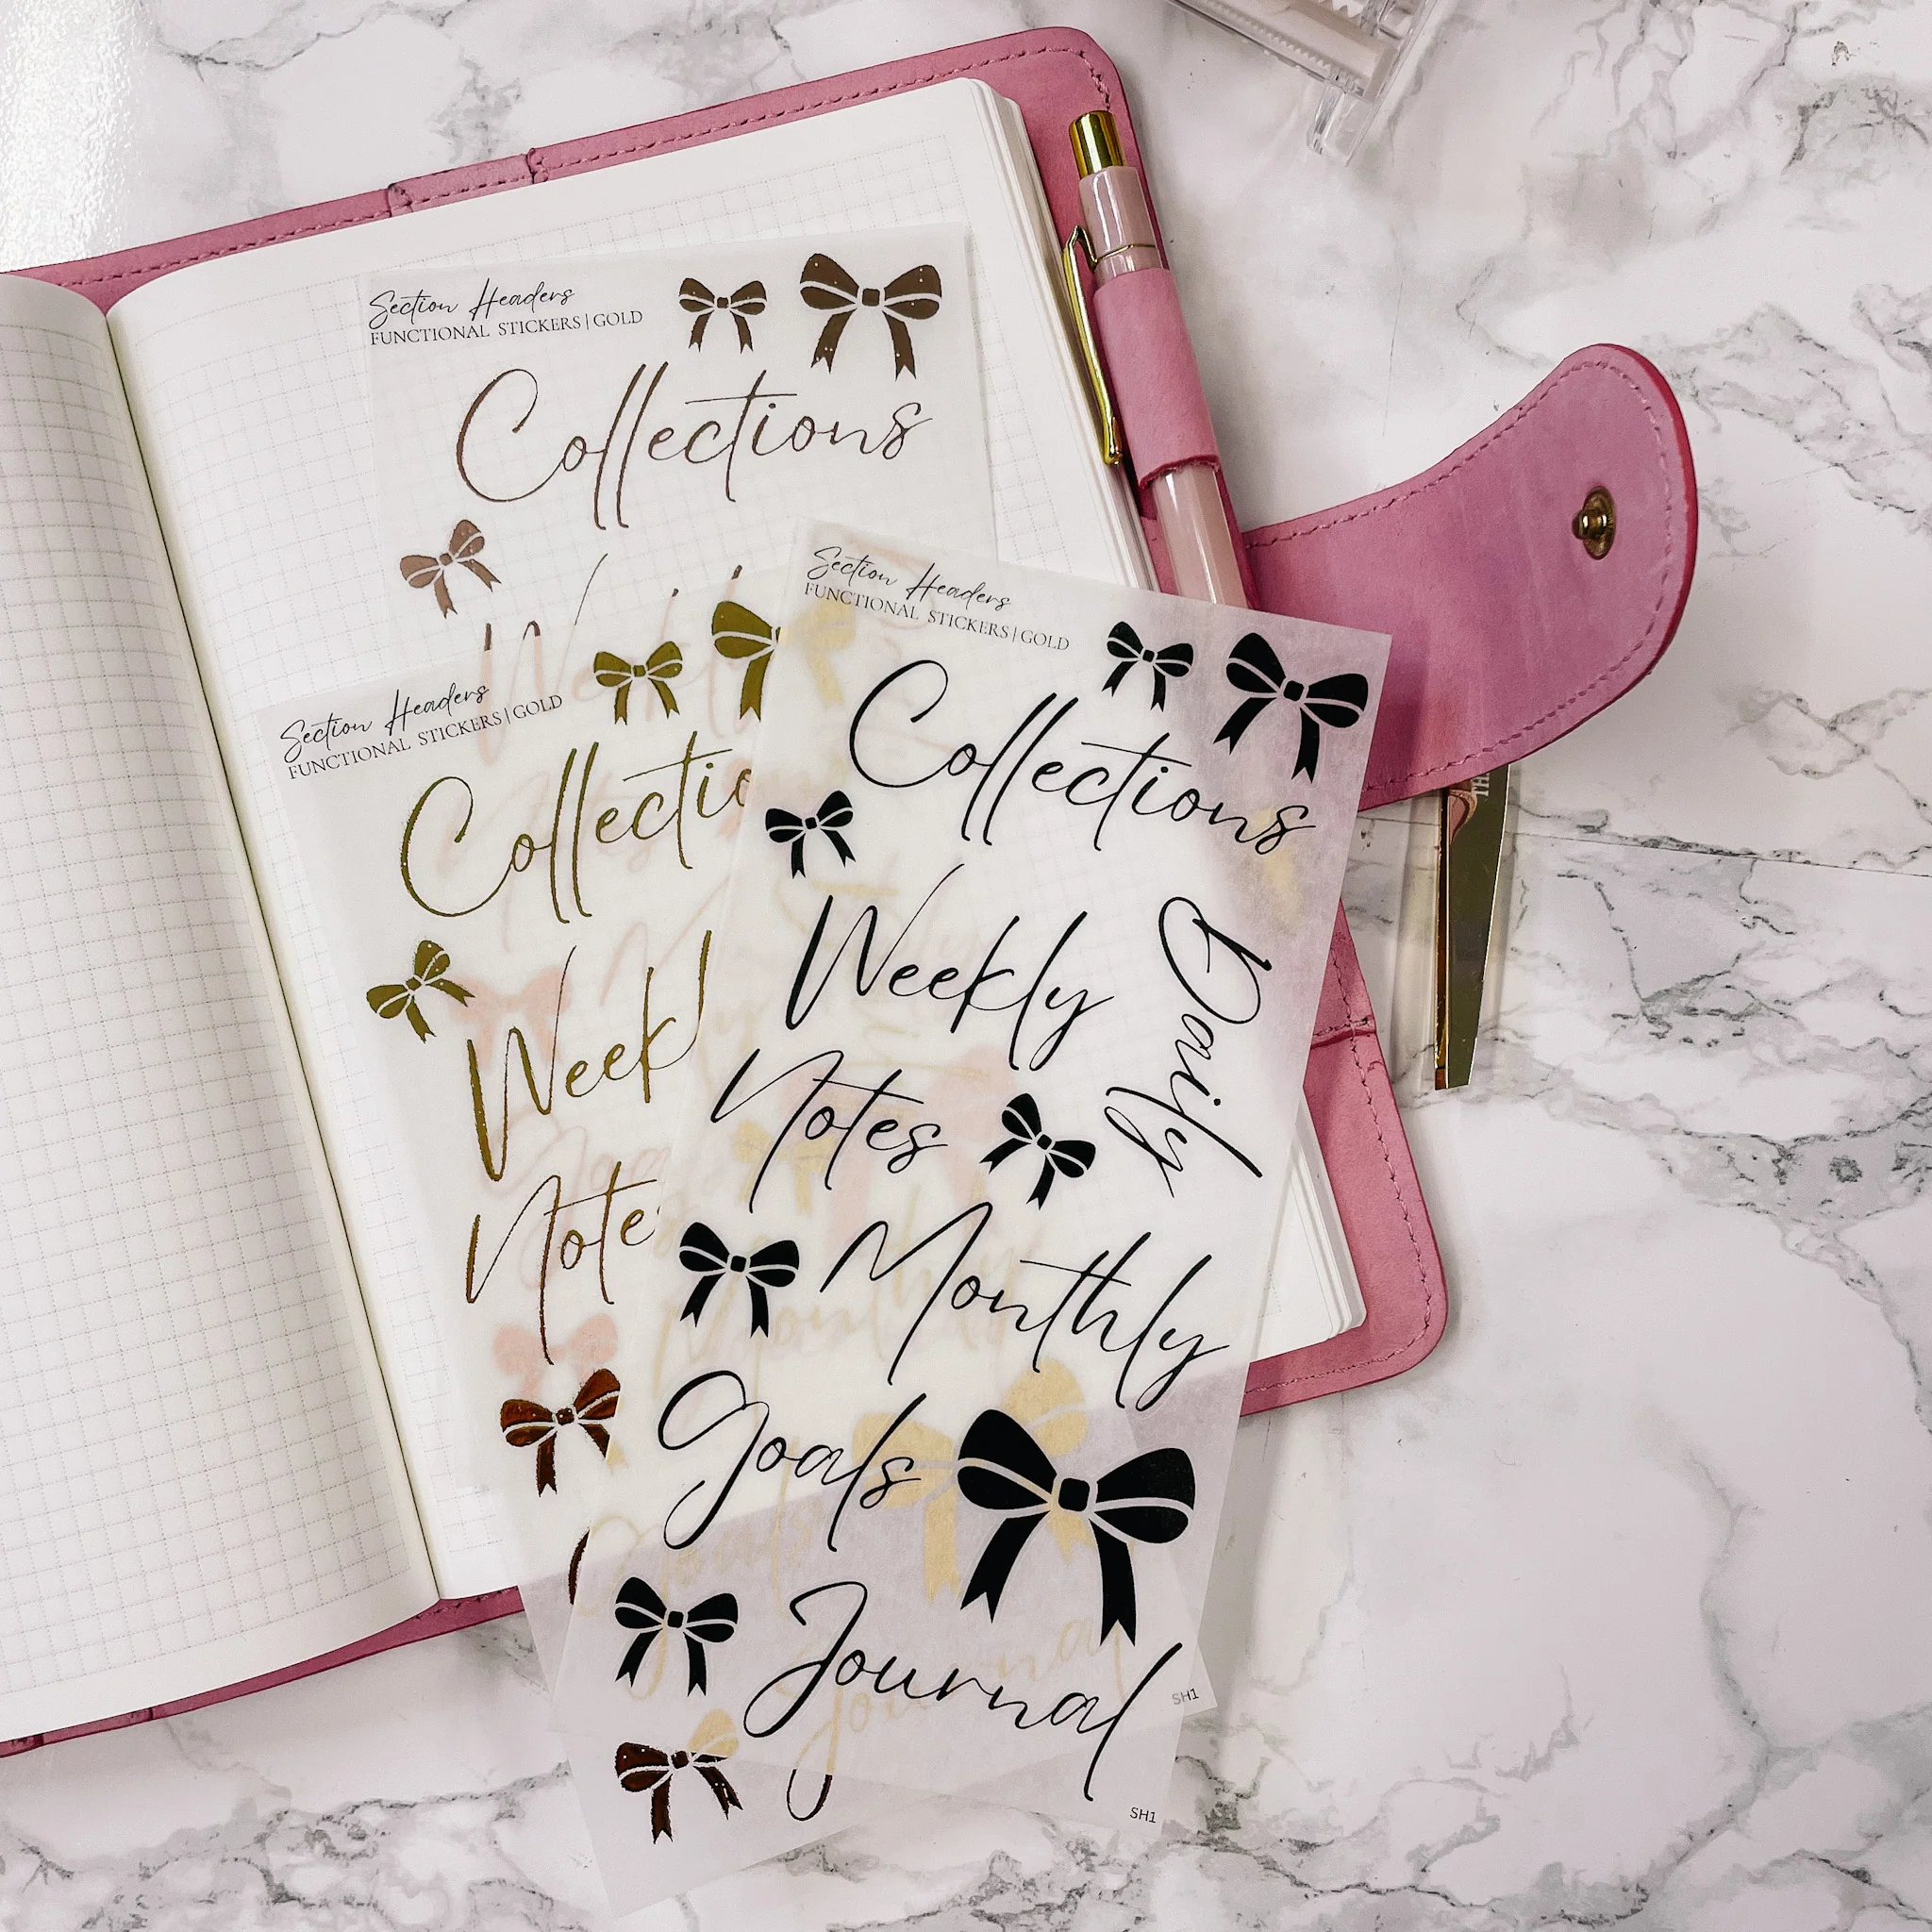 Section Headers
FUNCTIONAL STICKERS | GOLD
Collections
Weekly
Section Headers
FUNCTIONAL STICKERS | GOLD
Collectio
Weekl
Note
Section Headers
FUNCTIONAL STICKERS | GOLD
Collections
Weekly
Daily
Notes
Monthly
Goals
Journal
SH1
SH1